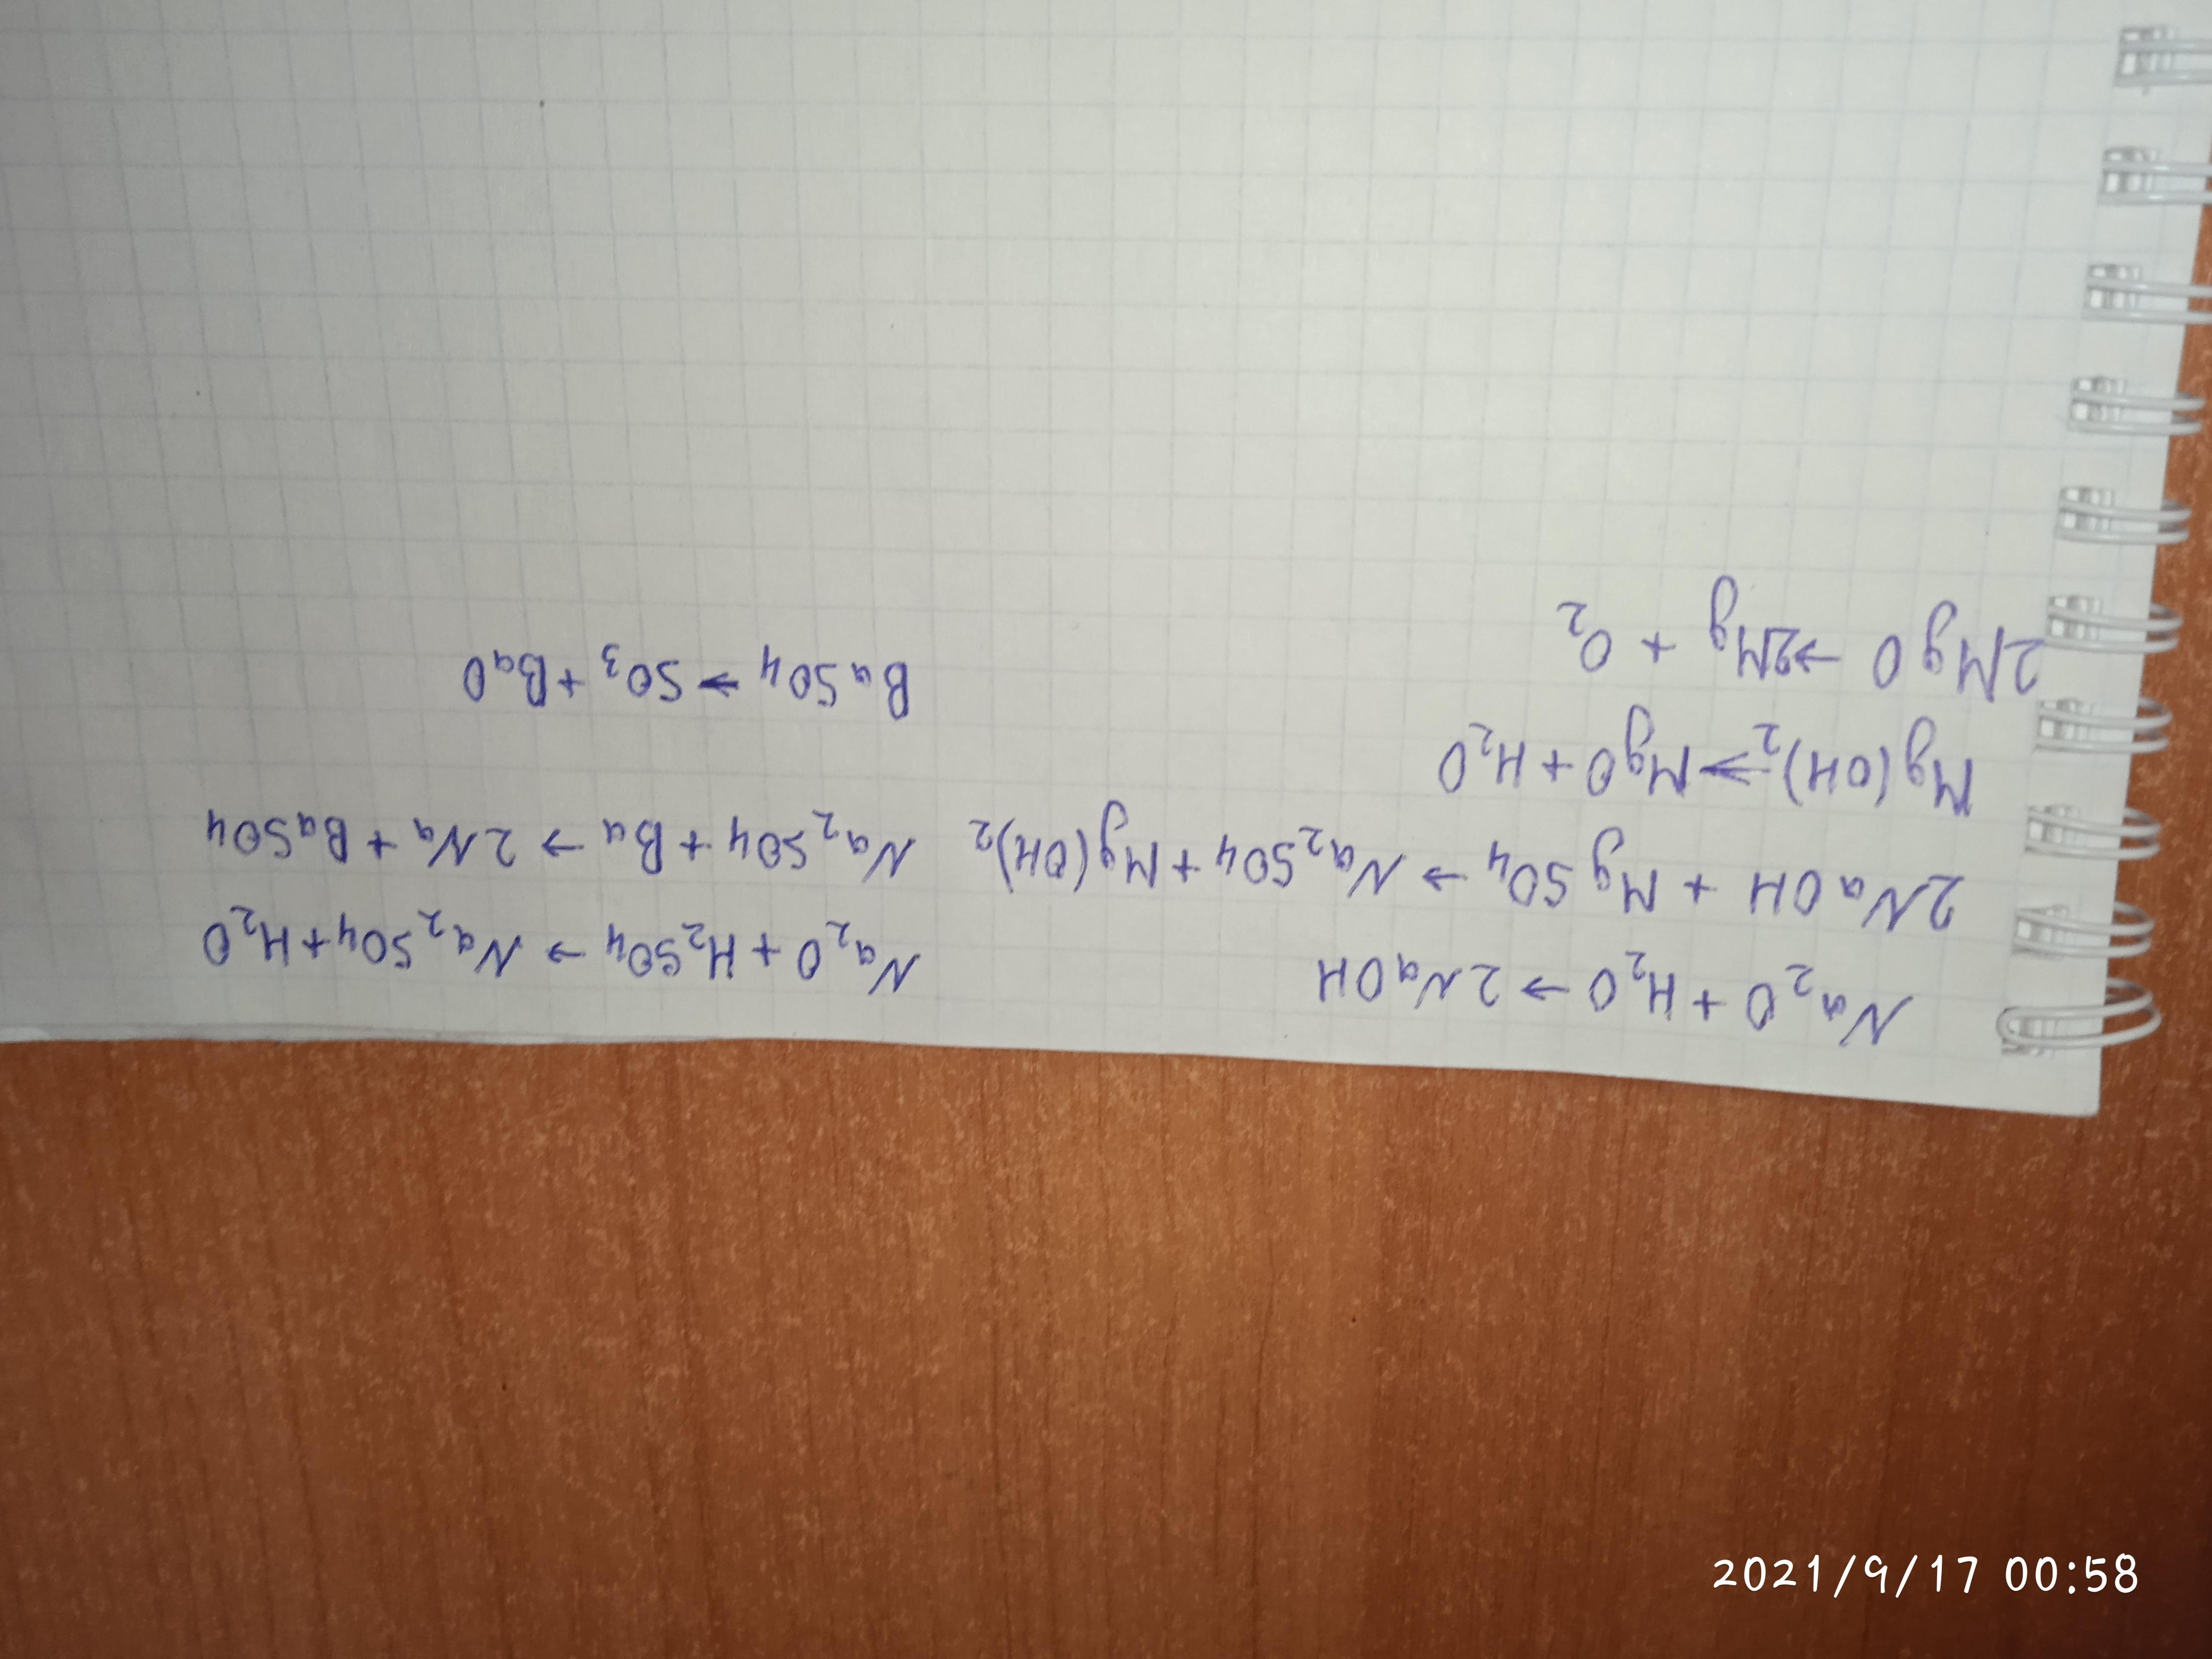 Na₂O + H₂O → 2NaOH
2NaOH + MgSO₄ → Na₂SO₄ + Mg(OH)₂
Mg(OH)₂ → MgO + H₂O
2MgO → 2Mg + O₂
Na₂O + H₂SO₄ → Na₂SO₄ + H₂O
Na₂SO₄ + Ba → 2Na + BaSO₄
BaSO₄ → SO₃ + BaO
2021/9/17 00:58